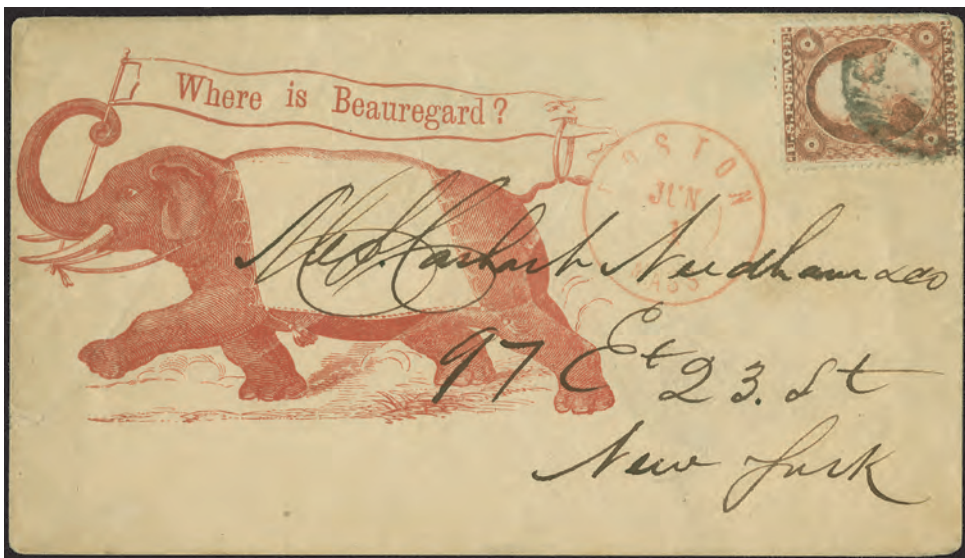 Where is Beauregard?
U.S. POSTAGE
BOSTON
JUN
MASS
Needham & Co
97 Et 23. St
New York